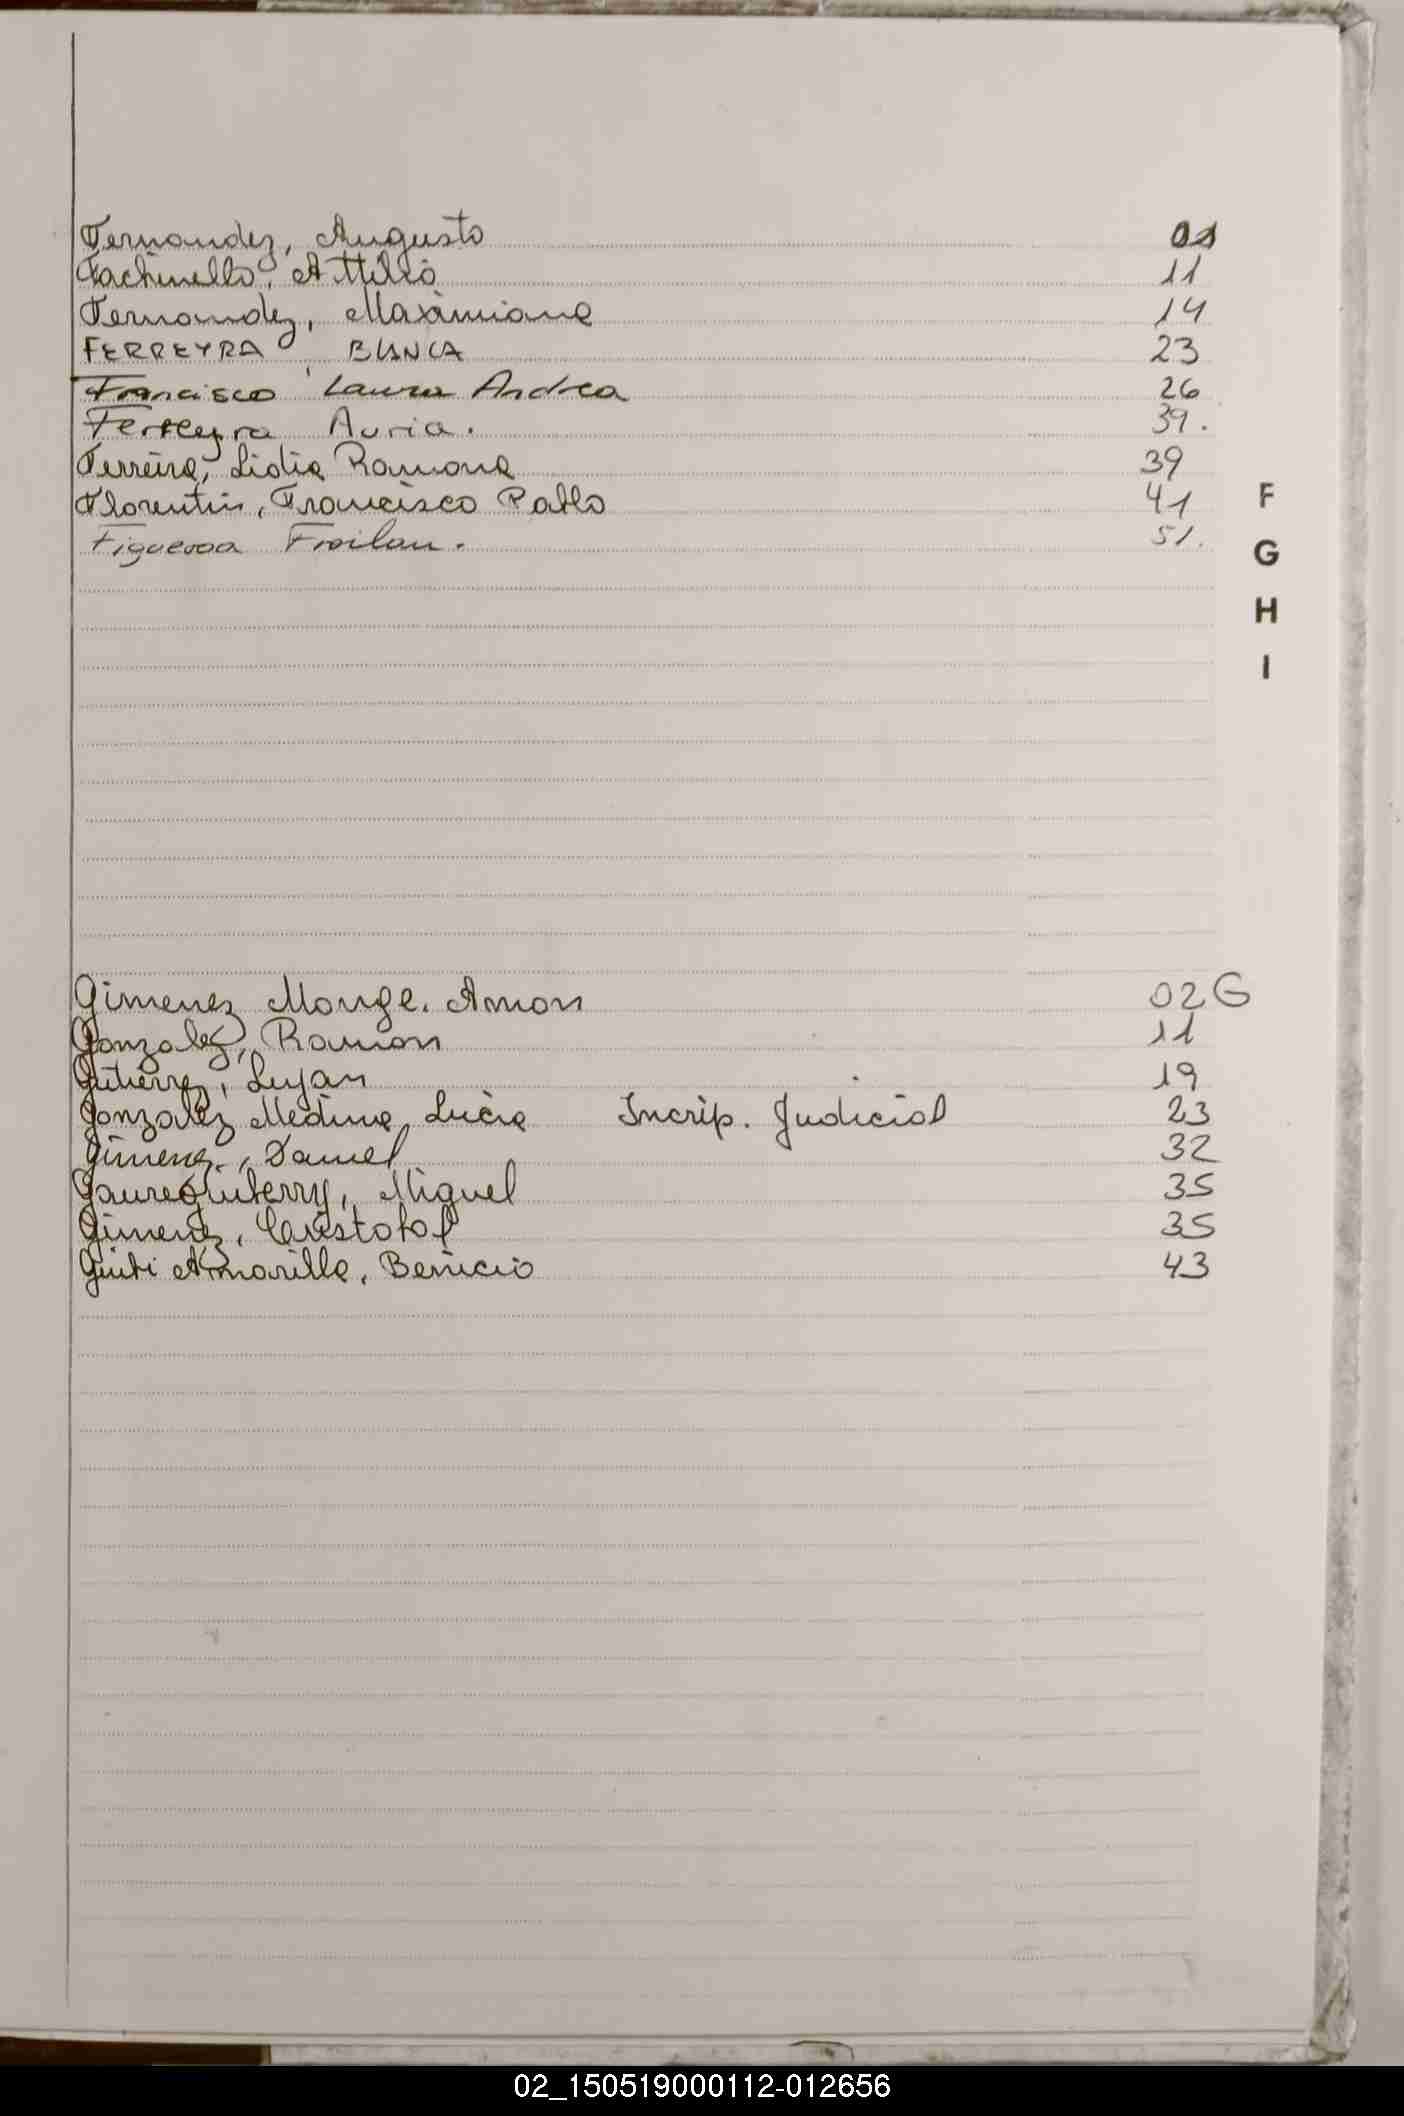 Fernandez, Augusto 01
Fachinello, Attilio 11
Fernandez, Maximiana 14
FERREYRA, BLANCA 23
Francisco Laura Andrea 26
Ferreyra Auria. 39.
Ferreira, Lidia Ramona 39
Florentin, Francisco Pablo 41
Figueroa Froilan. 51.
F
G
H
I
Gimenez Monge, Amon 02 G
Gonzalez, Ramon 11
Gutierrez, Lujan 19
Gonzalez Medina, Lucia Inscrip. Judicial 23
Gimenez, Daniel 32
Miguel 35
Gimenez, Cristobal 35
Amarilla, Benicio 43
02_150519000112-012656